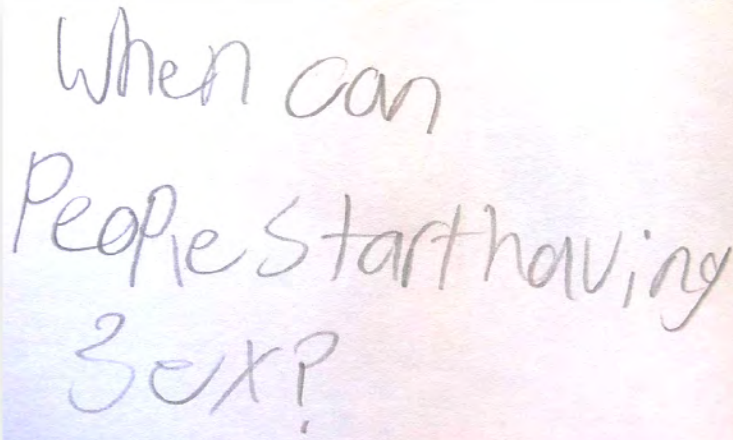 When can
People start having
Sex?